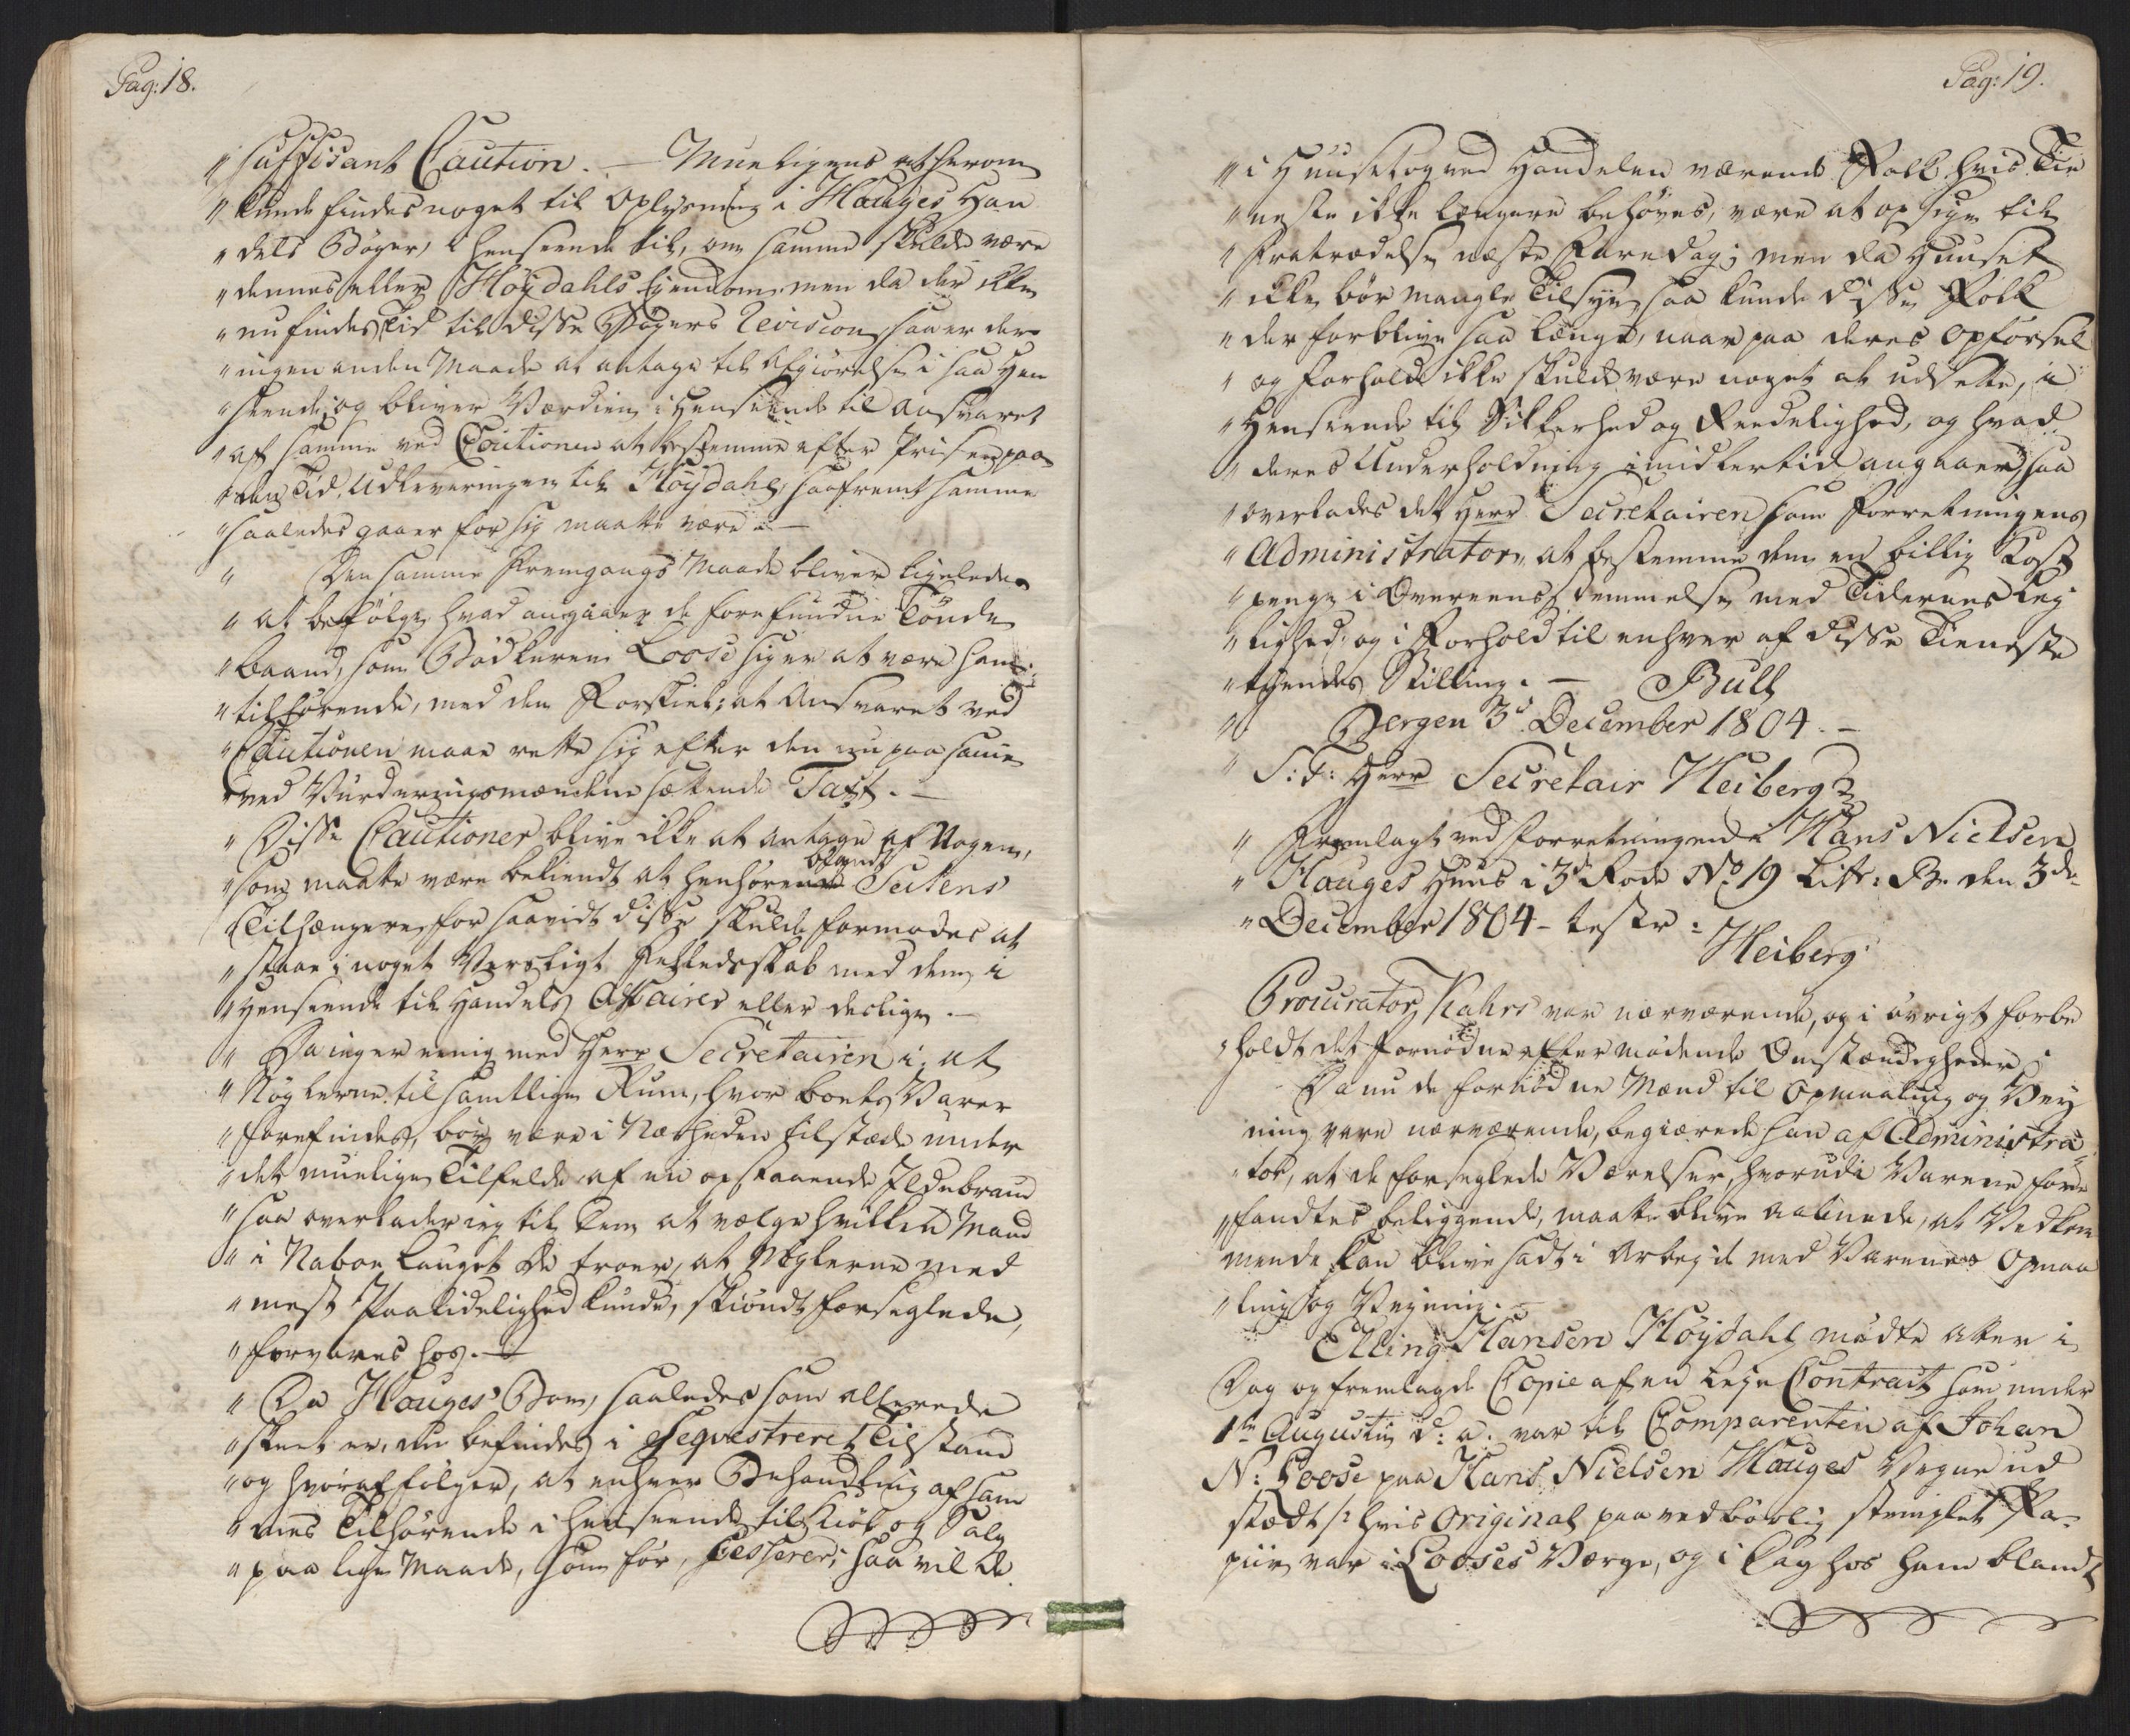 Pag: 18.
" suffisant Caution. — Mueligens at herom
" kunde findes noget til Oplysning i Hauges Han
" dels Bøger, i henseende til, om samme skulde være
" dennes eller Høydahls Eiendom, men da der ikke
" nu findes Tid til disse Bøgers Revision, saa er der
" ingen anden Maade at antage til Afgiørelse i saa Hen
" seende; og bliver Værdien i Henseende til Ansvaret
" af samme ved Cautionen at bestemme efter Prisen paa
" den Tid, Udleveringen til Høydahl, saafremt samme
" saaledes gaaer for sig maatte være. —
" Den samme Fremgangs Maade bliver ligeledes
" at befølge, hvad angaaer de forefundne Tønde
" baand, som Bødkeren Loose siger at være ham
" tilhørende, med den Forskiel; at Ansvaret ved
" Cautionen maae rette sig efter den nu paa samme
" ved Vurderingsmændene sættende Taxt. —
" Disse Cautioner blive ikke at antage af Nogen,
" som maatte være bekiendt at henhøre blandt Sectens
Tilhængere, for saavidt disse skulde formodes at
" staae i noget Versligt Fælledsskab med dem i
" Henseende til Handels Affairer eller deslige. —
" Da ieg er eenig med Herr Secretairen i, at
" Nøglerne til samtlige Rum, hvor boets Varer
" forefindes, bør være i Nærheden tilstæde under
" det muelige Tilfelde af en opstaaende Ildebrand
" saa overlader ieg til Dem at vælge hvilken Mand
" i Naboe Lauget De troer, at Nøglerne med
" mest Paalidelighed kunde, skiøndt forseglede,
" forvares hos. —
" Da Hauges Boe, saaledes som allerede
" skeet er, nu befindes i Seqvestreret Tilstand
" og hvoraf følger, at enhver Behandling af sam
" mes Tilhørende i Henseende til Kiøb og Salg
" paa lige Maade, som før, cesserer; saa vil de
Pag: 19.
" i Huuset og ved Handelen værende Folk, hvis Tie
" neste ikke længere behøves, være at opsige til
" Fratrædelse næste Faredag; men da Huuset
" ikke bør mangle Tilsyn, saa kunde disse Folk
" der forblive saa længe, naar paa deres Opførsel
" og Forhold ikke skulde være noget at udsette, i
" Henseende til Sikkerhed og Reedelighed, og hvad
" deres Underholdning imidlertid angaaer, saa
" overlades det Herr Secretairen som Forretningens
" Administrator, at bestemme dem en billig Kost
" penge i Overeensstemmelse med Tidernes Ley
" lighed, og i Forhold til enhver af disse Tieneste
" tyendes Stilling. — Bull
" Bergen 3d December 1804. —
" S: T: Herr Secretair Heiberg
" Fremlagt ved Forretningen i Hans Nielsen
" Hauges Huus i 3d Rode No 19 Litr: B. den 3de
" December 1804 - testr:
Heiberg
Procurator Kahrs var nærværende, og i øvrigt forbe
" holdt det fornødne efter mødende Omstændigheder,
Da nu de fornødne Mænd til Opmaaling og Vey
ning vare nærværende, begiærede han af Administra
" tor, at de forseglede Værelser, hvorudi Varene fore
" fandtes beliggende, maatte blive aabnede, at Vedkom
mende kan blive sadt i Arbeyde med Varenes Opmaa
" ling og Veyning. —
Elling Hansen Høydahl mødte atter i
Dag og fremlagde Copie af en Leye Contract som under
1te Augustii d: a. var til Comparenten af Johan
N: Loose paa Hans Nielsen Hauges Vegne ud
stædt /: hvis Original paa vedbørlig stemplet Pa-
piir var i Looses Værge, og i Lag hos ham blandt